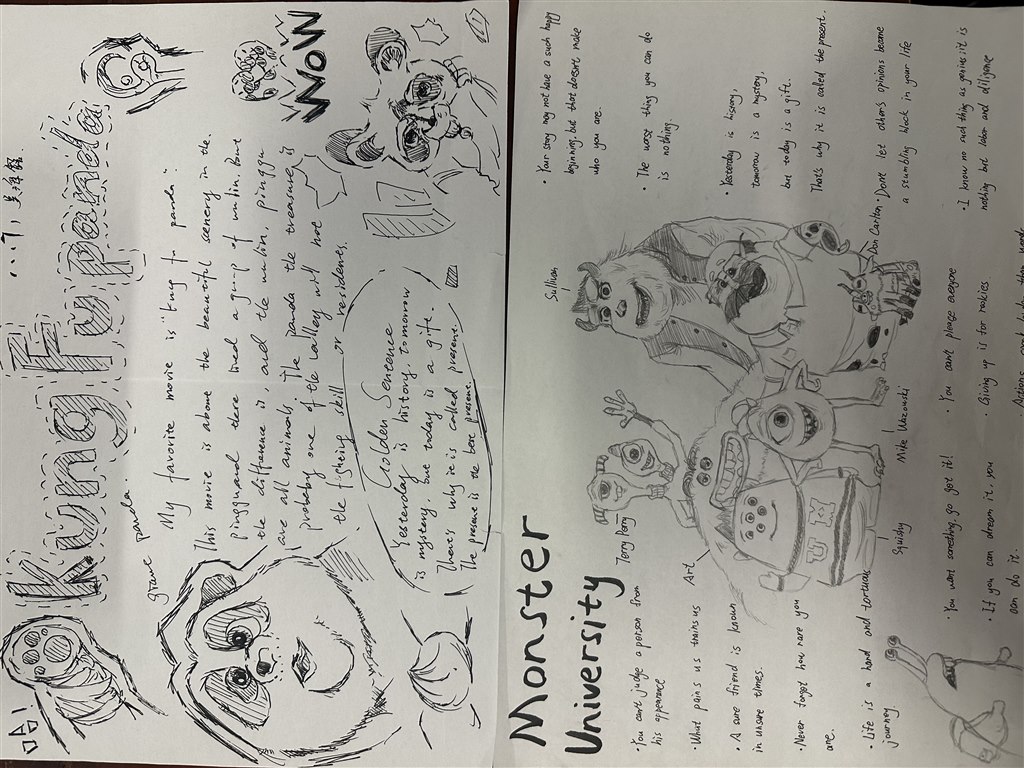 Kung Fu panda
giant panda.
My favorite movie is "kung fu panda".
This movie is aboue the beautiful scenery in the
pingguand there lived a gung of wulin. But
the difference is, and the wulin, pinggu
are all animals. The panda the treasure is
probeby one of the valley will not
the flshing skill or residents.
Golden Sentence
Yesterday is history. tomorrow
is mysery. but today is a gift.
That's why ie is called present.
The present is the bese present.
WOW
Monster
University
Sullivan
Terry Perry
Art
Don Carlton
Mike Wazowski
Squishy
· You can't judge a person from
his appearance
· What pains us trains us
· A sure friend is known
in unsure times.
· Never forget how rare you
are.
· Life is a hard and tortuous
journey.
· Your story may not have a such happy
beginning, but that doesn't make
who you are.
· The worse thing you can do
is nothing.
· Yesterday is hisory,
tomorrow is a mystery,
but today is a gift.
That's why it is called the present.
· Don't let other's opinions become
a stumbling block in your life
· I know no such thing as genius; it is
nothing but labor and diligence
· You want something, go get it!
· You can't please everyone
· If you can dream it, you
can do it.
· Giving up is for rookies